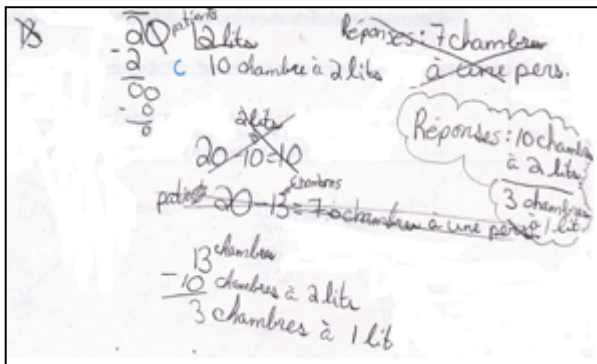 20 patients 2 lits
- 2 C 10 chambre à 2 lits
00
- 0
0
Réponses : 7 chambres
à une pers.
2 lits
20 - 10 = 10
Réponses : 10 chambres
à 2 lits
3 chambres
à 1 lit.
patients 20 - 13 chambres = 7 chambres à une pers
13 chambres
- 10 chambres à 2 lits
3 chambres à 1 lit